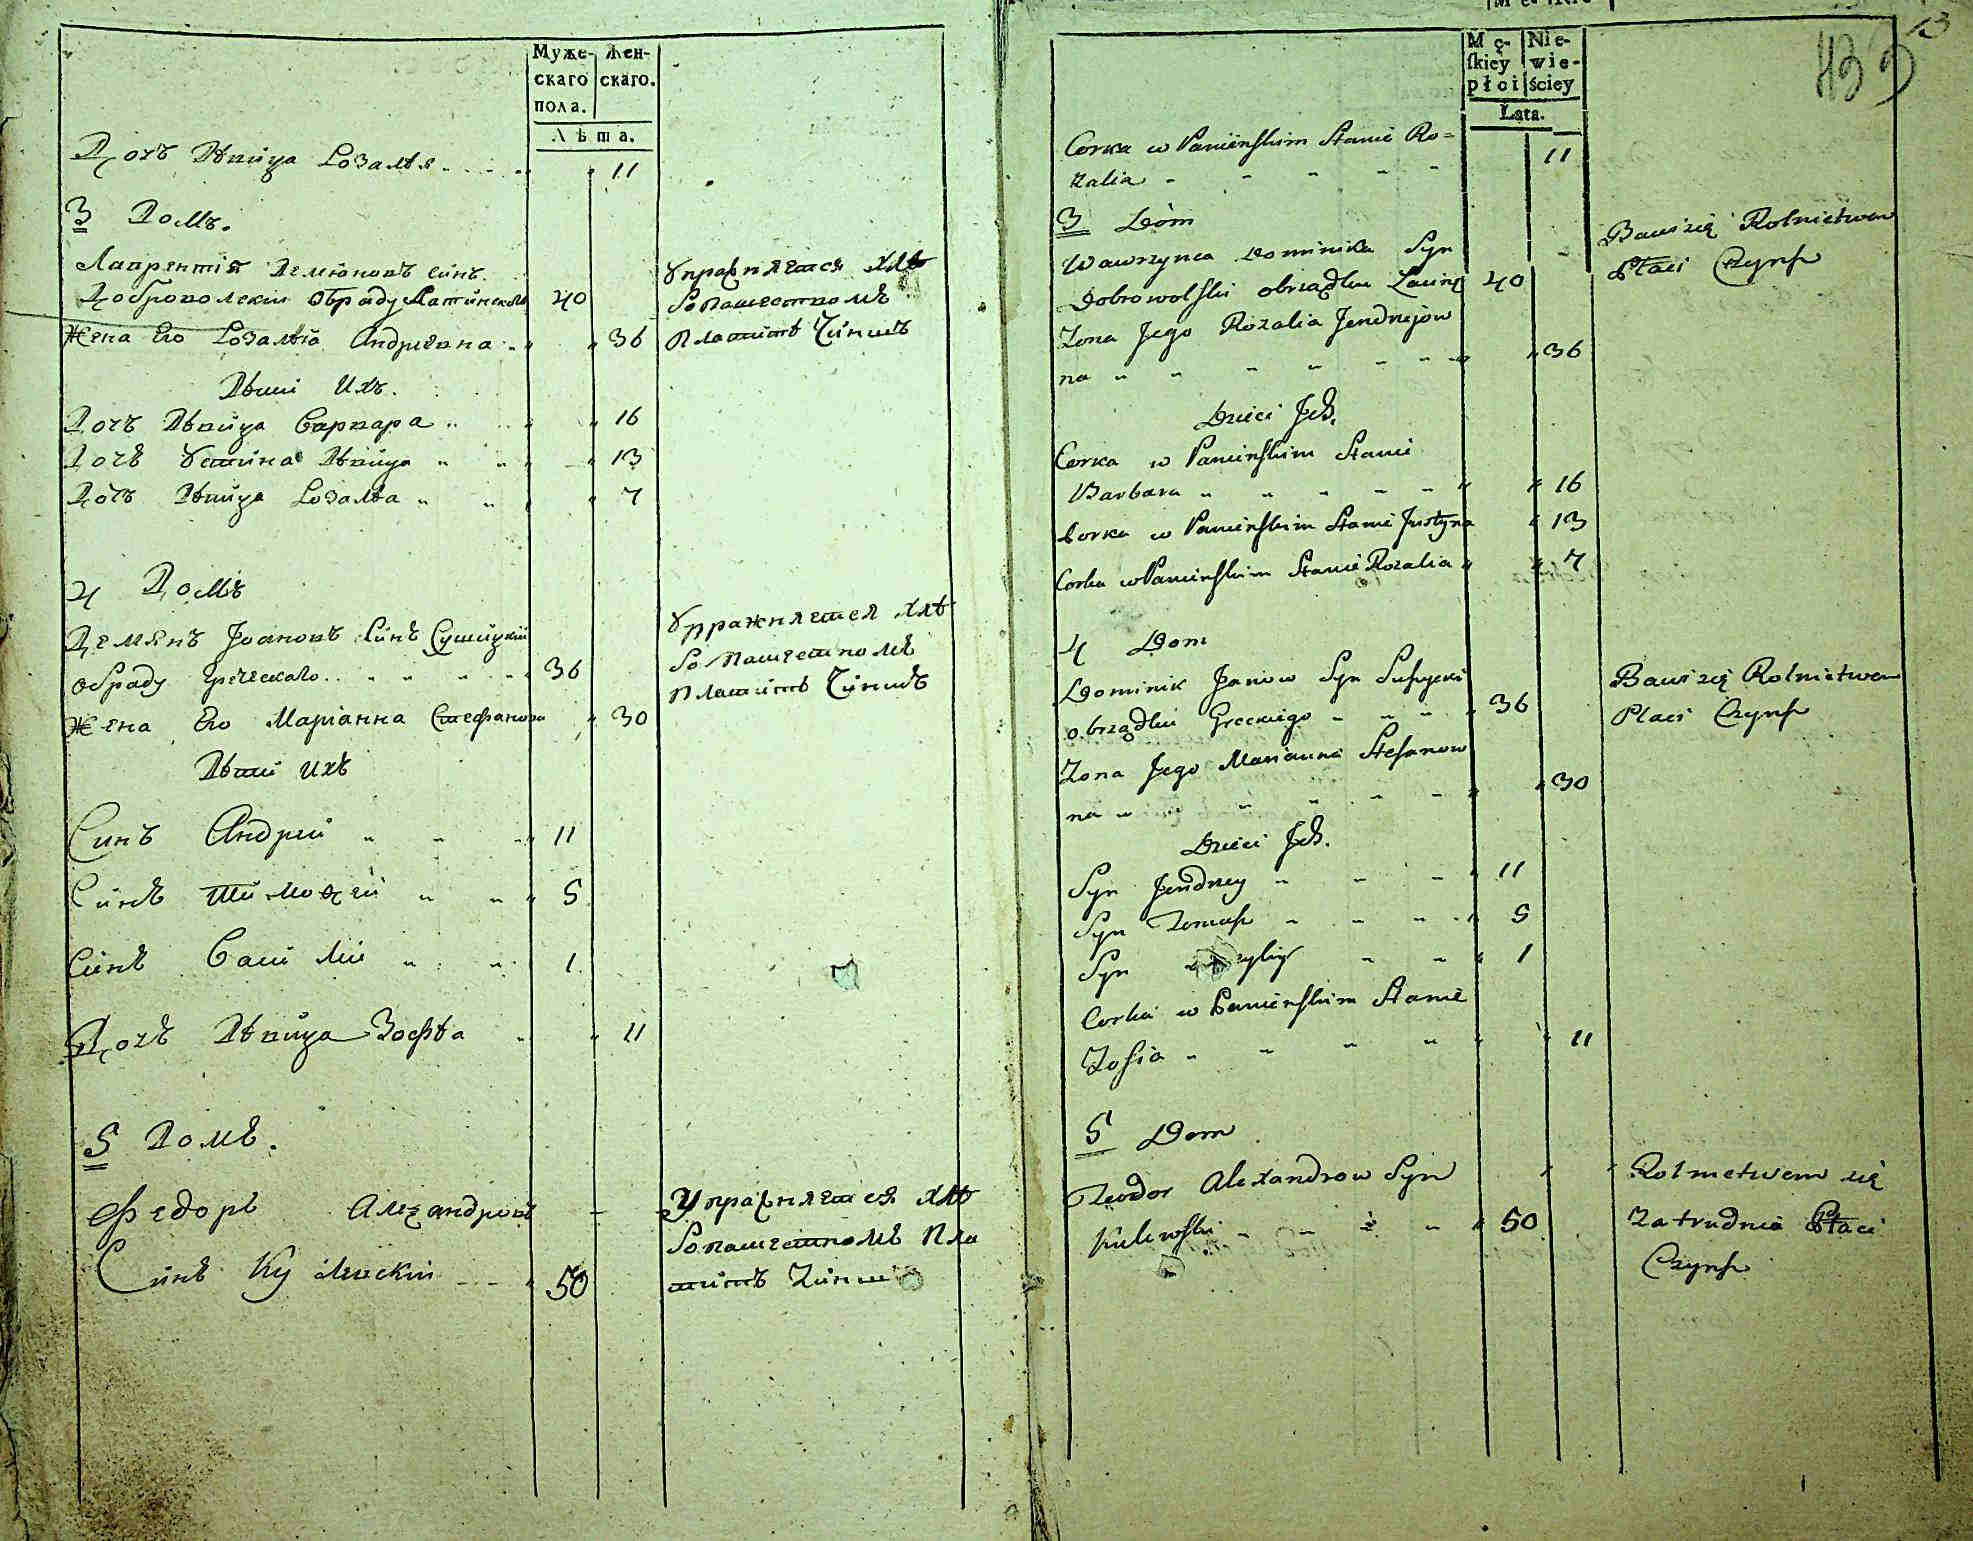 Муже-
скаго
пола.
Жен-
скаго.
Лѣта.
Дочь Дѣвица Розалѣя 11
3 Домъ.
Лаврентій Демяновъ синъ
Доброволскій обряду Латинскаго 40
Управляется хлѣ
бопашествомъ
Платитъ Чиншъ
Жена Его Розалія Андреевна 36
Дѣти Ихъ.
Дочь Дѣвица Варвара 16
Дочь Устина Дѣвица 13
Дочь Дѣвица Розалѣа 7
4 Домъ
Демянъ Іоановъ Синъ Сушицкій
обряду Греческаго 36
Упражняется хлѣ
бопашествомъ
Платитъ Чиншъ
Жена Его Маріанна Стефанова 30
Дѣти Ихъ
Синъ Андрей 11
Синъ Тимофей 5
Синъ Василій 1
Дочь Дѣвица Зофѣа 11
5 Домъ.
Федоръ Александровъ
Синъ Кулевскій 50
Управляется хлѣ
бопашествомъ Пла
титъ Чинш
13
Mę-
ſkiey
płci
Nie-
wie-
ściey
Lata.
Corka w Panieńskim Stanie Ro=
zalia 11
3 Dom
Wawrzynca Dominika Syn
Dobrowolski obrządku Łacinſ 40
Bawi się Rolnictwem
Płaci Czynſz
Zona Jego Rozalia Jendrzejow
na 36
Dzieci Jch.
Corka w Panieńskim Stanie
Barbara 16
Corka w Panieńskim Stanie Justyna 13
Corka w Panieńskim Stanie Rozalia 7
4 Dom
Dominik Janow Syn Suſzycki
obrządku Greckiego 36
Bawi się Rolnictwem
Płaci Czynſz
Zona Jego Marianna Stefanow
na 30
Dzieci Jch.
Syn Jendrzey 11
Syn Tomaſz 5
Syn 1
Corka w Panieńskim Stanie
Zofia 11
5 Dom
Teodor Alexandrow Syn
Kulewski 50
Rolnictwem się
Zatrudnia Płaci
Czynſz